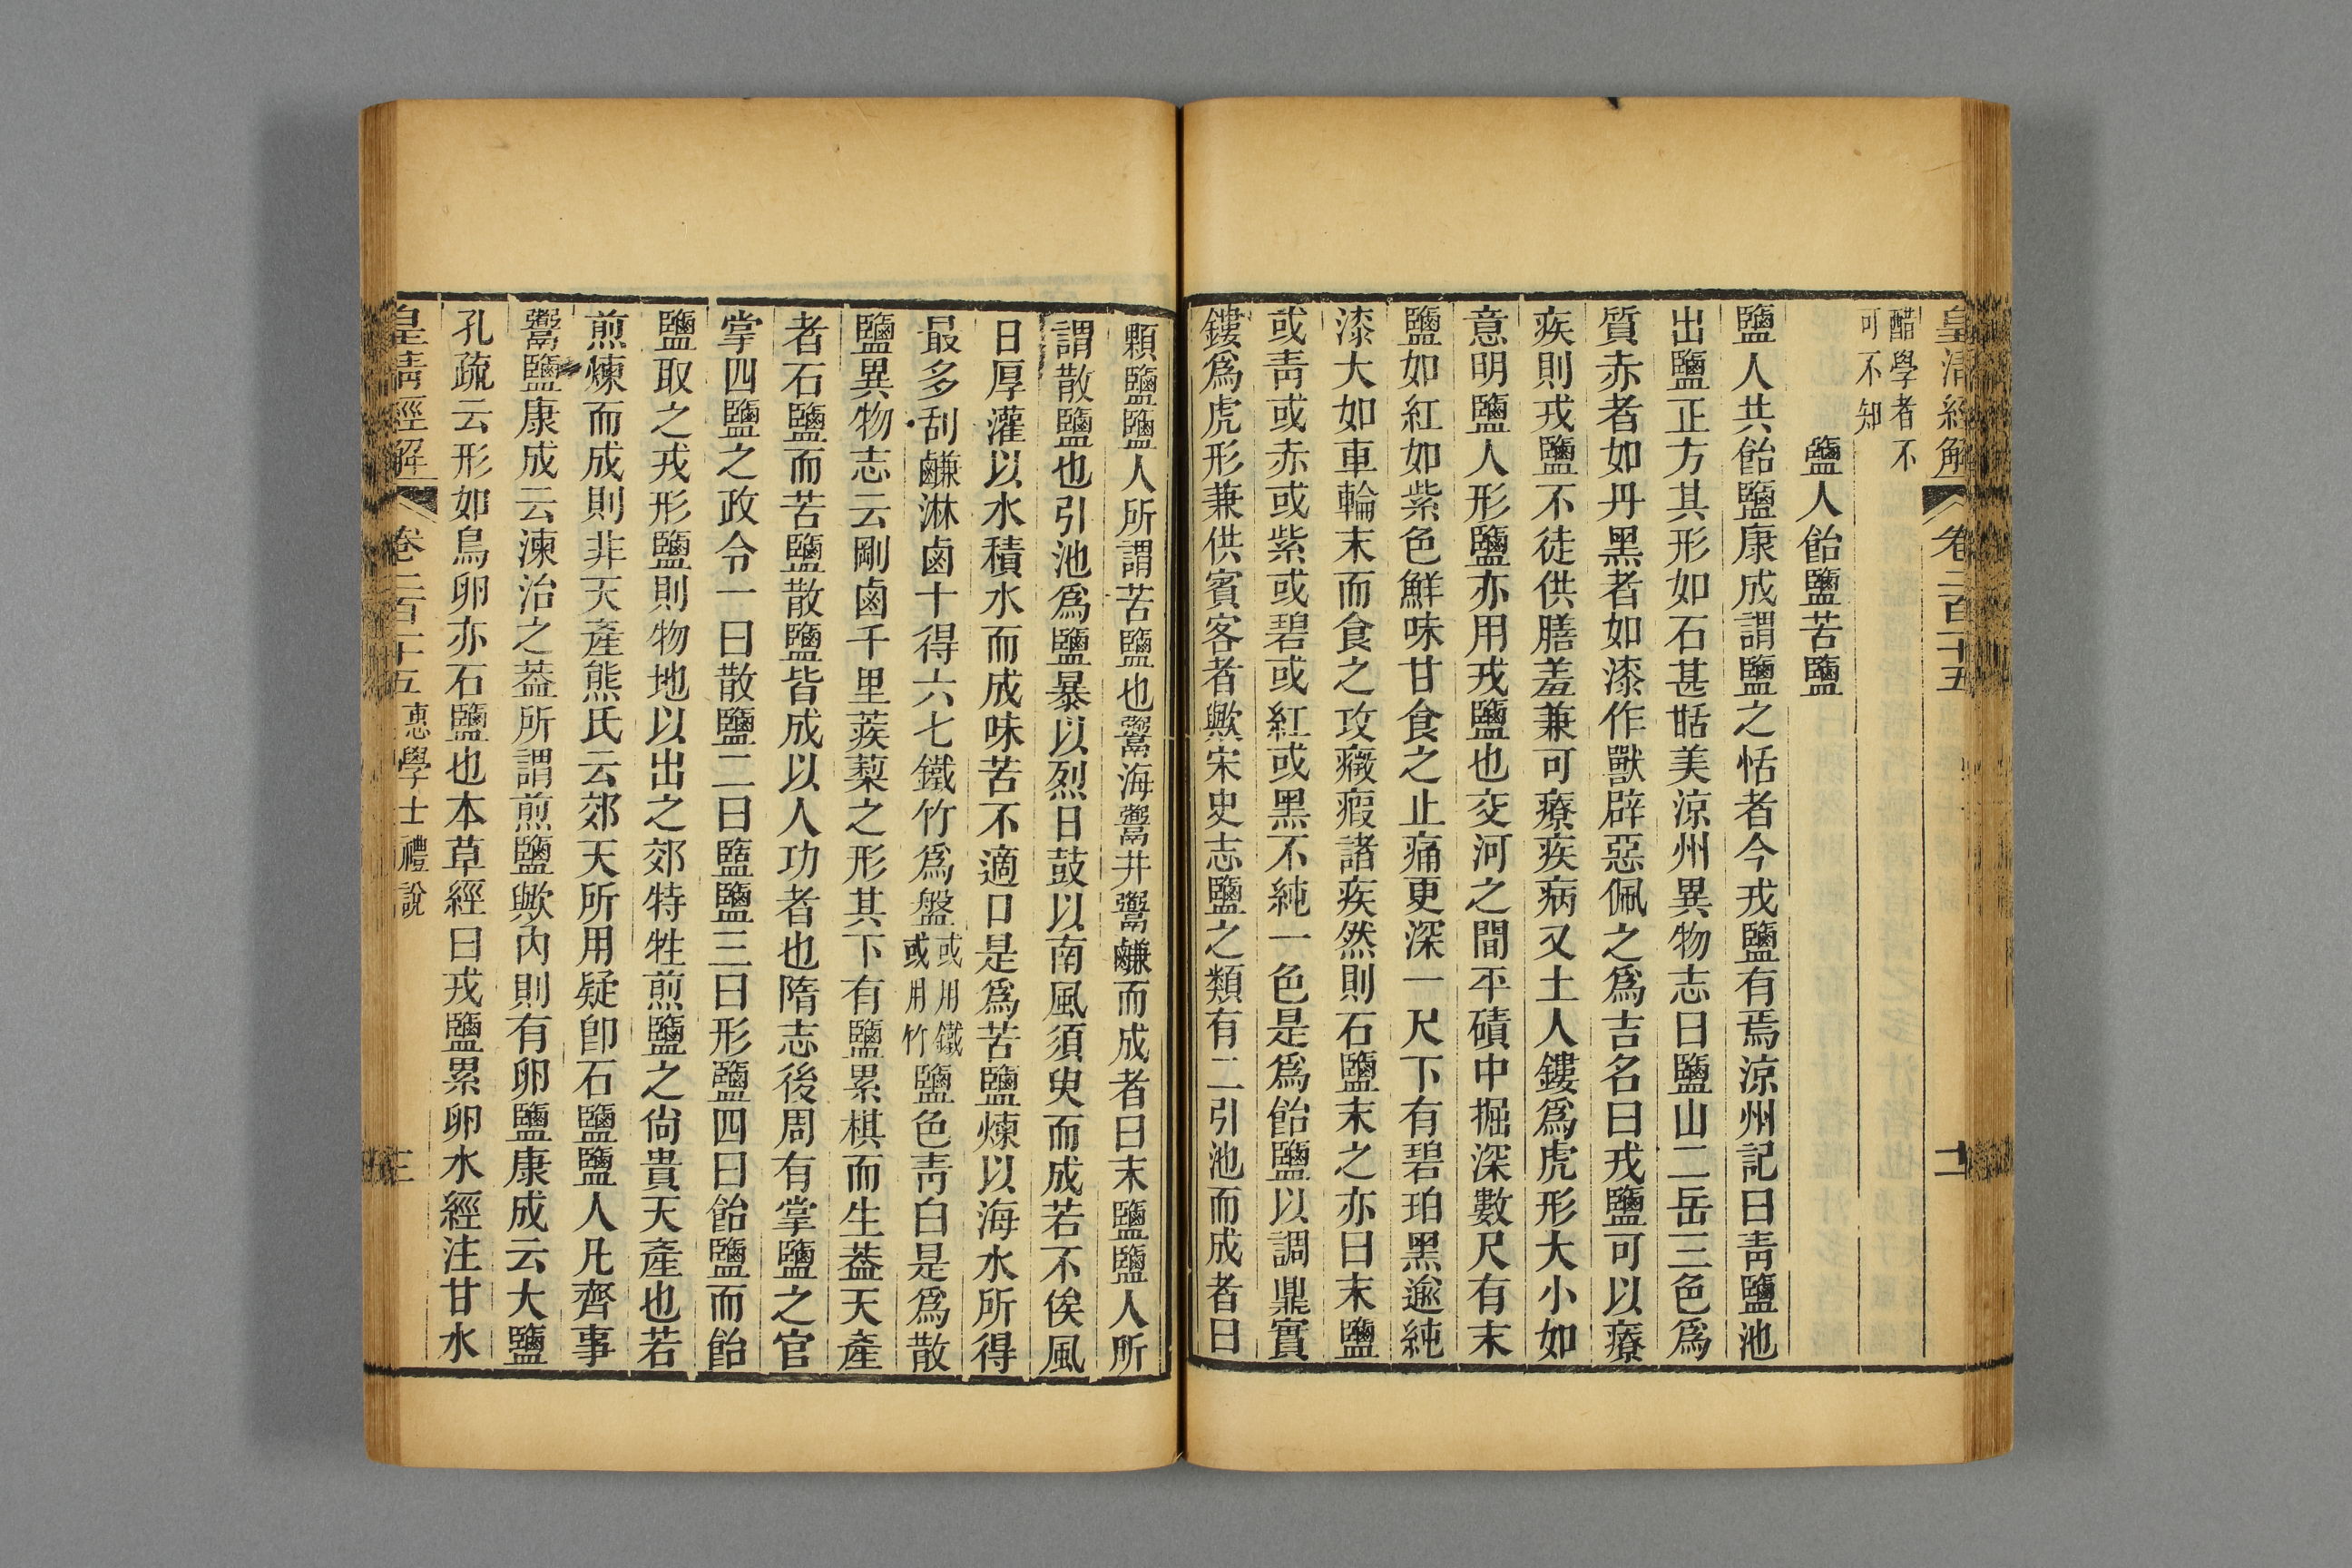 皇清經解 卷二百十五 二
醋學者不
可不知
鹽人飴鹽苦鹽
鹽人共飴鹽康成謂鹽之恬者今戎鹽有焉涼州記曰靑鹽池
出鹽正方其形如石甚甛美涼州異物志曰鹽山二岳三色爲
質赤者如丹黑者如漆作獸辟惡佩之爲吉名曰戎鹽可以療
疾則戎鹽不徒供膳羞兼可療疾病又土人鏤爲虎形大小如
意明鹽人形鹽亦用戎鹽也交河之間平磧中掘深數尺有末
鹽如紅如紫色鮮味甘食之止痛更深一尺下有碧珀黑逾純
漆大如車輪末而食之攻癥瘕諸疾然則石鹽末之亦曰末鹽
或靑或赤或紫或碧或紅或黑不純一色是爲飴鹽以調鼎實
鏤爲虎形兼供賓客者歟宋史志鹽之類有二引池而成者曰
顆鹽鹽人所謂苦鹽也鬻海鬻井鬻鹻而成者曰末鹽鹽人所
謂散鹽也引池爲鹽暴以烈日鼓以南風須臾而成若不俟風
日厚灌以水積水而成味苦不適口是爲苦鹽煉以海水所得
最多刮鹻淋鹵十得六七鐵竹爲盤或用鐵或用竹鹽色靑白是爲散
鹽異物志云剛鹵千里蒺蔾之形其下有鹽累棋而生葢天產
者石鹽而苦鹽散鹽皆成以人功者也隋志後周有掌鹽之官
掌四鹽之政令一曰散鹽二曰盬鹽三曰形鹽四曰飴鹽而飴
鹽取之戎形鹽則物地以出之郊特牲煎鹽之尙貴天產也若
煎煉而成則非天產熊氏云郊天所用疑卽石鹽鹽人凡齊事
鬻鹽康成云湅治之葢所謂煎鹽歟內則有卵鹽康成云大鹽
孔疏云形如鳥卵亦石鹽也本草經曰戎鹽累卵水經注甘水
皇清經解 卷二百十五 惠學士禮說 三